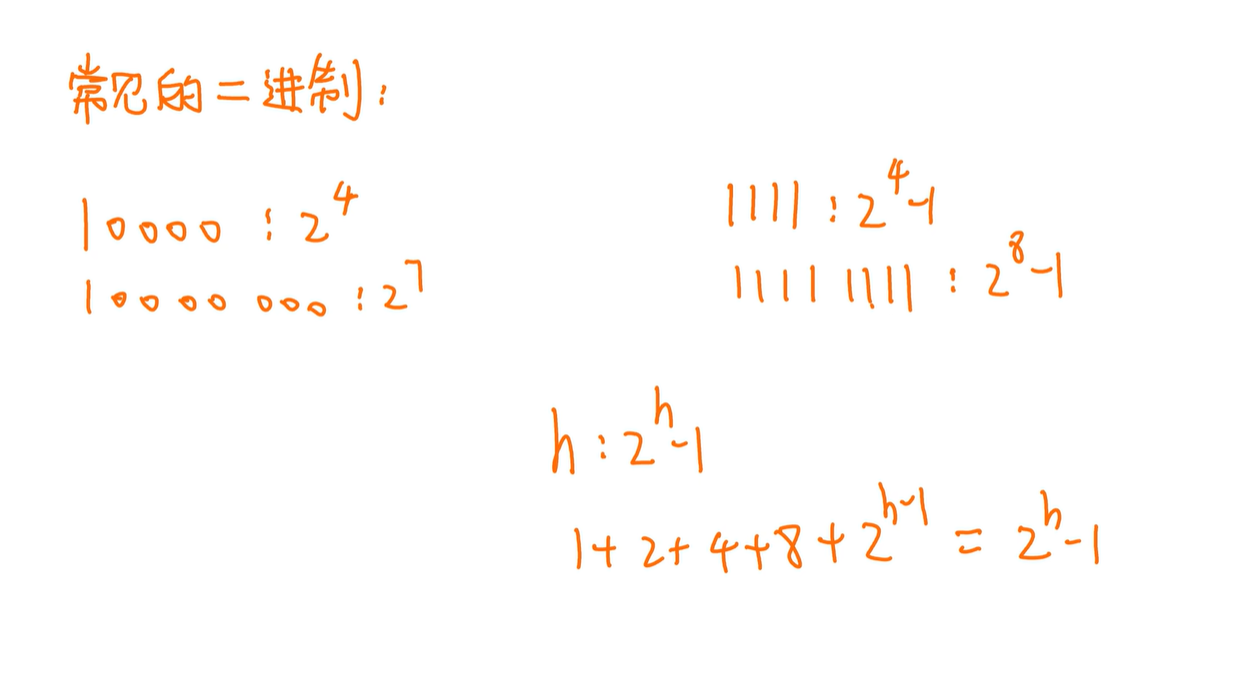 常见的二进制:
10000 : 2^4
10000 000 : 2^7
1111 : 2^4-1
1111 1111 : 2^8-1
h : 2^h-1
1+2+4+8+2^h-1 = 2^h-1